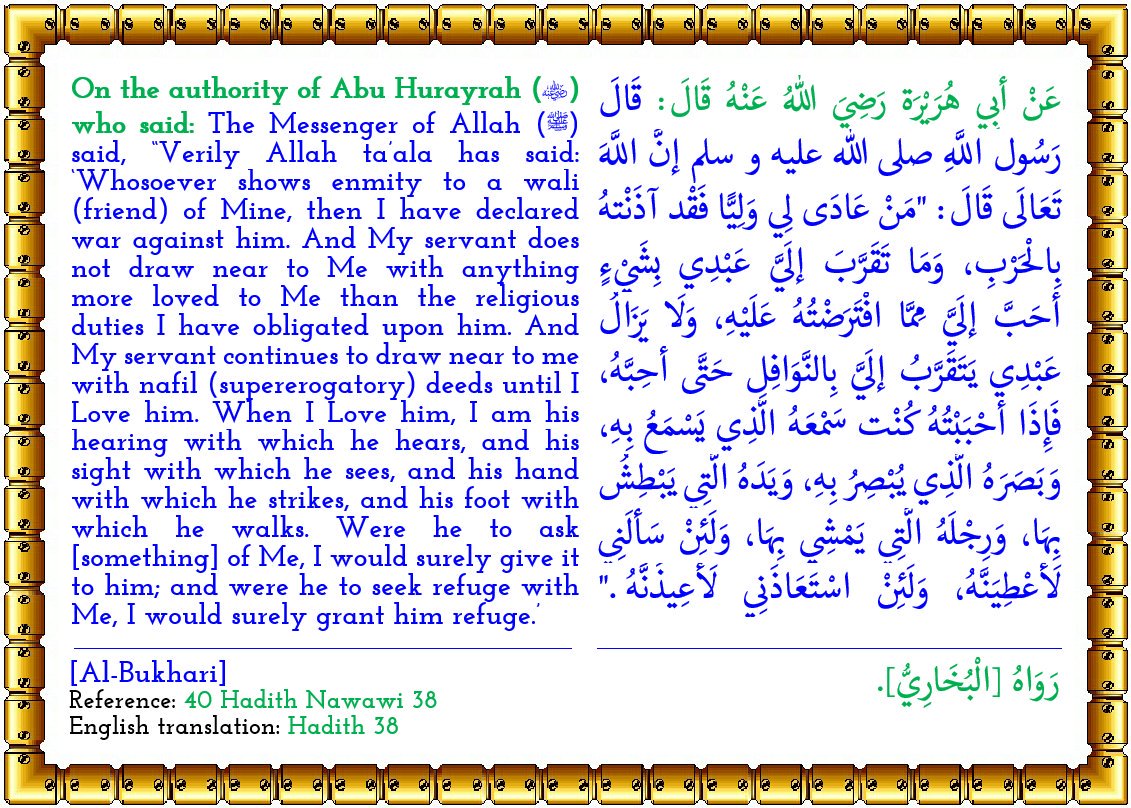 On the authority of Abu Hurayrah (رضي الله عنه)
who said: The Messenger of Allah (ﷺ)
said, “Verily Allah ta’ala has said:
‘Whosoever shows enmity to a wali
(friend) of Mine, then I have declared
war against him. And My servant does
not draw near to Me with anything
more loved to Me than the religious
duties I have obligated upon him. And
My servant continues to draw near to me
with nafil (supererogatory) deeds until I
Love him. When I Love him, I am his
hearing with which he hears, and his
sight with which he sees, and his hand
with which he strikes, and his foot with
which he walks. Were he to ask
[something] of Me, I would surely give it
to him; and were he to seek refuge with
Me, I would surely grant him refuge.’
[Al-Bukhari]
Reference: 40 Hadith Nawawi 38
English translation: Hadith 38
عَنْ أَبِي هُرَيْرَة رَضِيَ اللهُ عَنْهُ قَالَ: قَالَ
رَسُول اللَّهِ صلى الله عليه و سلم إنَّ اللَّهَ
تَعَالَى قَالَ: "مَنْ عَادَى لِي وَلِيًّا فَقْد آذَنْتهُ
بِالْحَرْبِ، وَمَا تَقَرَّبَ إلَيَّ عَبْدِي بِشَيْءٍ
أَحَبَّ إلَيَّ مِمَّا افْتَرَضْتُهُ عَلَيْهِ، وَلَا يَزَالُ
عَبْدِي يَتَقَرَّبُ إلَيَّ بِالنَّوَافِلِ حَتَّى أُحِبَّهُ،
فَإِذَا أَحْبَبْتُهُ كُنْت سَمْعَهُ الَّذِي يَسْمَعُ بِهِ،
وَبَصَرَهُ الَّذِي يُبْصِرُ بِهِ، وَيَدَهُ الَّتِي يَبْطِشُ
بِهَا، وَرِجْلَهُ الَّتِي يَمْشِي بِهَا، وَلَئِنْ سَأَلَنِي
لَأُعْطِيَنَّهُ، وَلَئِنْ اسْتَعَاذَنِي لَأُعِيذَنَّهُ ."
رَوَاهُ [الْبُخَارِيُّ].